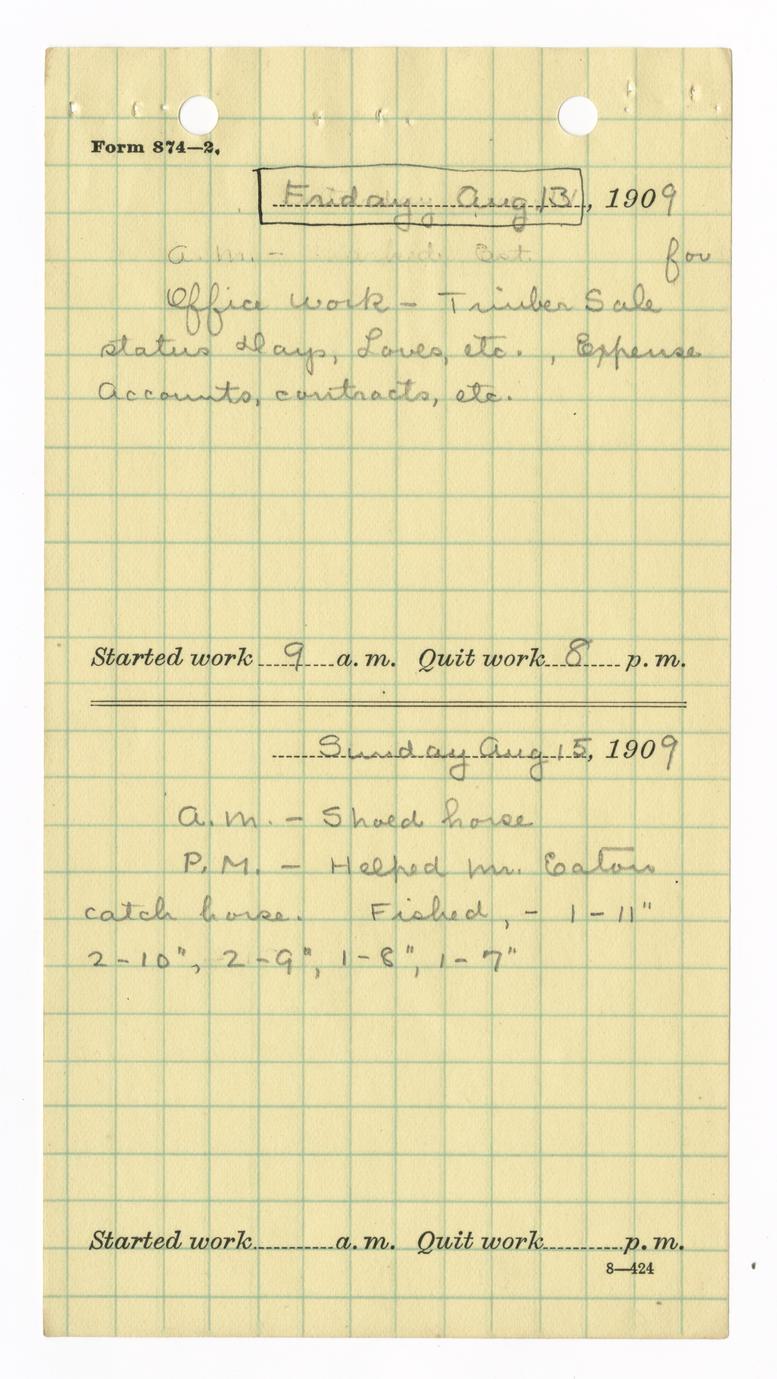 Form 874—2.
Friday, Aug 13, 1909
a.m. - for
Office work - Timber Sale
status Days, Loves, etc. , Expense
Accounts, contracts, etc.
Started work 9 a. m. Quit work 8 p. m.
Sunday Aug 15, 1909
A.M. - Shoed horse
P.M. - Helped Mr. Eaton
catch horse. Fished, - 1-11"
2-10", 2-9", 1-8", 1-7"
Started work a. m. Quit work p. m.
8—424